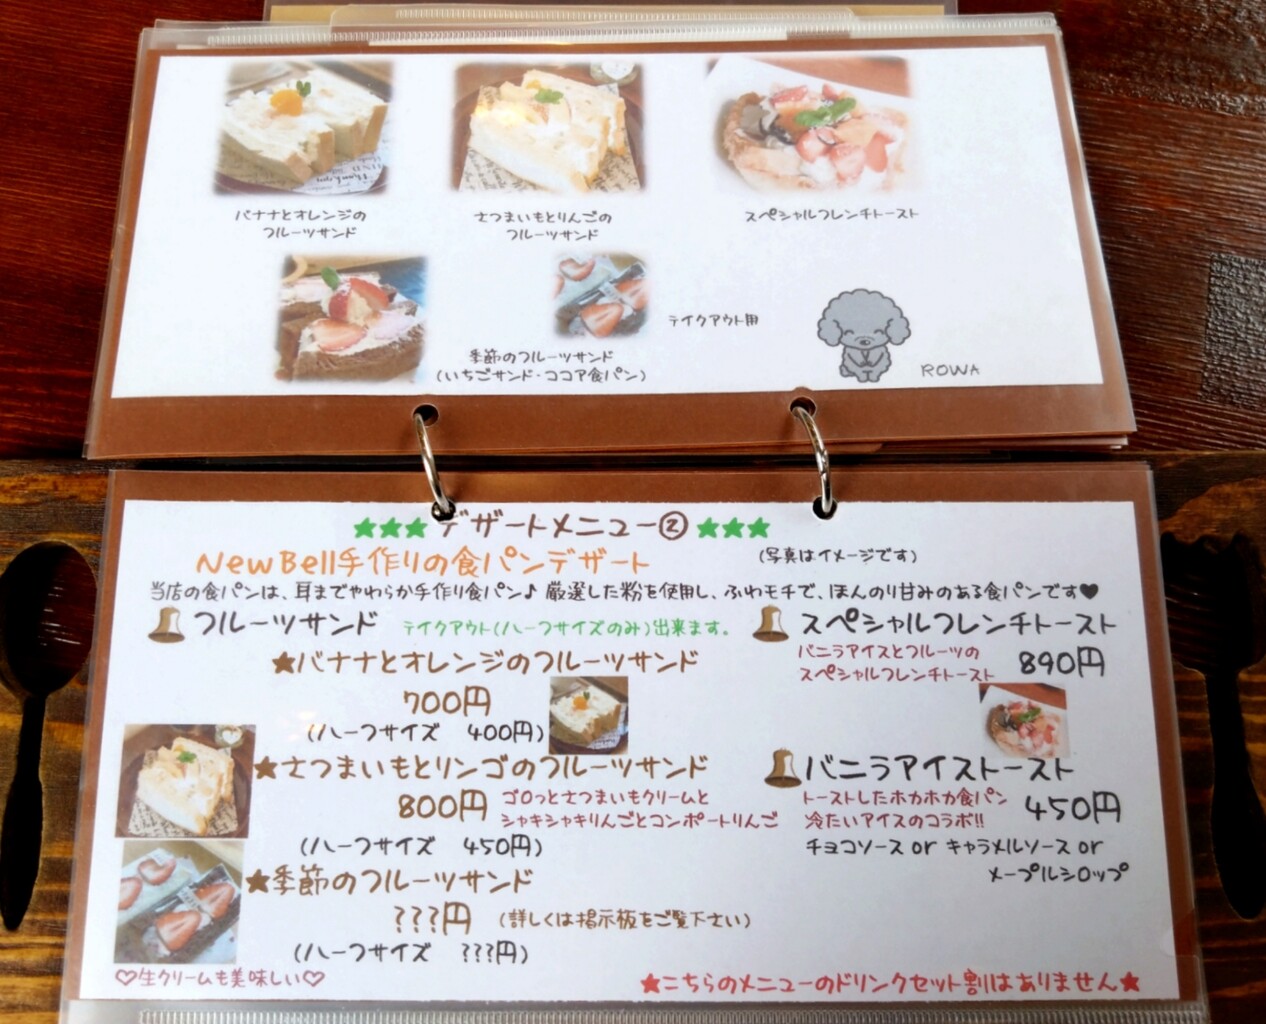 バナナとオレンジの
フルーツサンド
さつまいもとりんごの
フルーツサンド
スペシャルフレンチトースト
テイクアウト用
季節のフルーツサンド
(いちごサンド・ココア食パン)
ROWA
★★★デザートメニュー②★★★
NewBell手作りの食パンデザート
(写真はイメージです)
当店の食パンは、耳までやわらか手作り食パン♪ 厳選した粉を使用し、ふわモチで、ほんのり甘みのある食パンです♥
フルーツサンド テイクアウト(ハーフサイズのみ)出来ます。
★バナナとオレンジのフルーツサンド
700円
(ハーフサイズ 400円)
★さつまいもとリンゴのフルーツサンド
800円
ゴロっとさつまいもクリームと
シャキシャキりんごとコンポートりんご
(ハーフサイズ 450円)
★季節のフルーツサンド
???円 (詳しくは掲示板をご覧下さい)
(ハーフサイズ ???円)
♡生クリームも美味しい♡
スペシャルフレンチトースト
バニラアイスとフルーツの
スペシャルフレンチトースト
890円
バニラアイストースト
トーストしたホカホカ食パン
冷たいアイスのコラボ!!
450円
チョコソース or キャラメルソース or
メープルシロップ
★こちらのメニューのドリンクセット割はありません★